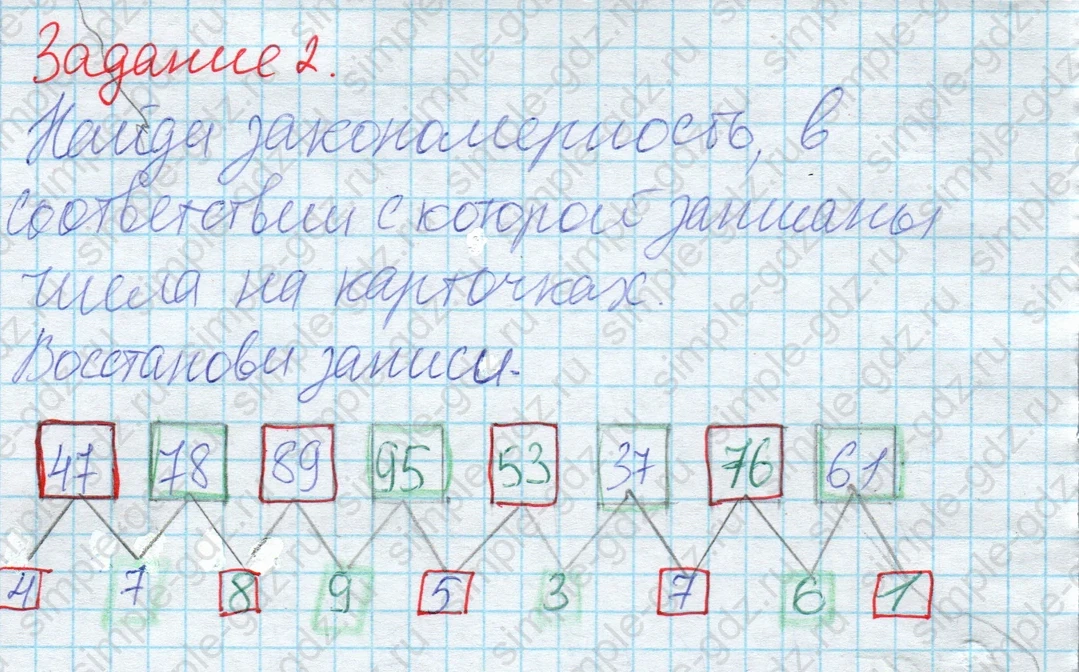 Задание 2.
Найди закономерность, в
соответствии с которой записаны
числа на карточках.
Восстанови записи.
47 78 89 95 53 37 76 61
4 7 8 9 5 3 7 6 1
simple-gdz.ru